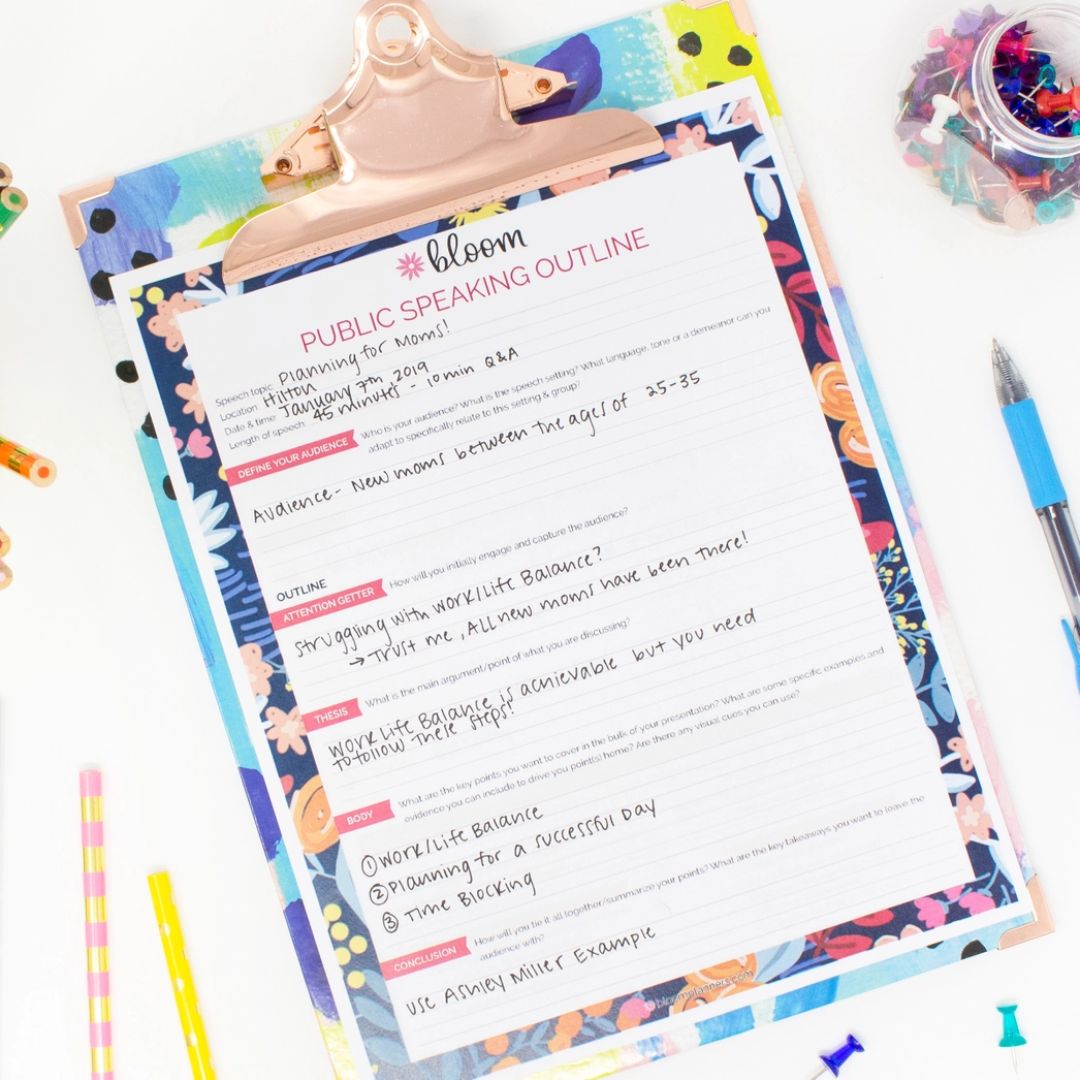 bloom
PUBLIC SPEAKING OUTLINE
Speech topic: Planning for Moms!
Location: Hilton
Date & time: January 7th, 2019
Length of speech: 45 minutes - 10 min Q&A
DEFINE YOUR AUDIENCE Who is your audience? What is the speech setting? What language, tone or a demeanor can you
adapt to specifically relate to this setting & group?
Audience - New moms between the ages of 25-35
OUTLINE
ATTENTION GETTER How will you initially engage and capture the audience?
Struggling with work/life Balance?
→ Trust me, All new moms have been there!
THESIS What is the main argument/point of what you are discussing?
Work Life Balance is achievable but you need
to follow these steps!
BODY What are the key points you want to cover in the bulk of your presentation? What are some specific examples and
evidence you can include to drive you point(s) home? Are there any visual cues you can use?
① Work/Life Balance
② Planning for a successful Day
③ Time Blocking
CONCLUSION How will you tie it all together/summarize your points? What are the key takeaways you want to leave the
audience with?
Use Ashley Miller Example
©bloomplanners.com